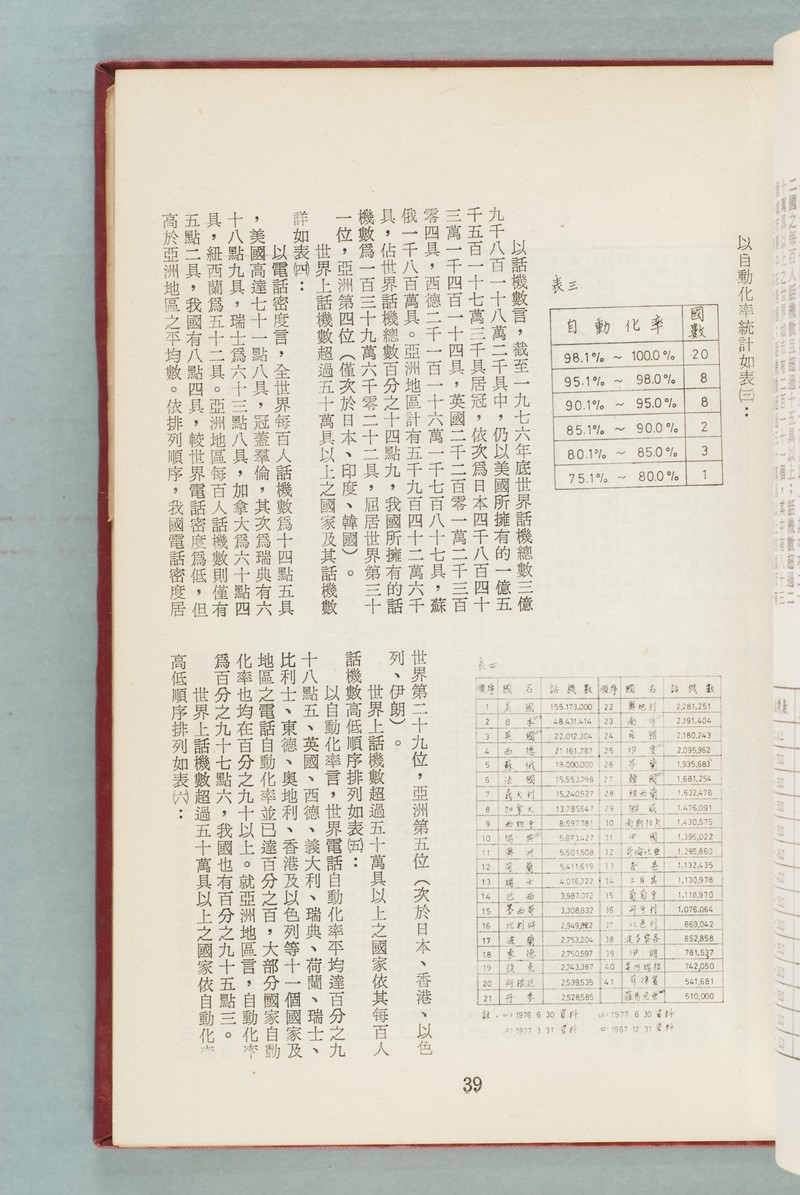 以自動化率統計如表㈢：
表三
自動化率 國數
98.1% ~ 100.0% 20
95.1% ~ 98.0% 8
90.1% ~ 95.0% 8
85.1% ~ 90.0% 2
80.1% ~ 85.0% 3
75.1% ~ 80.0% 1
以話機數言，截至一九七六年底世界話機總數三億
九千八百一十八萬二千具中，仍以美國所擁有的一億五
千五百一十七萬三千具居冠，依次爲日本四千八百四十
三萬一千四百一十四具，英國二千二百零一萬二千三百
零四具，西德二千一百一十六萬一千七百八十七具，蘇
俄一千八百萬具。亞洲地區計有五千九百四十二萬六千
具，佔世界話機總數百分之十四點九，我國所擁有的話
機數爲一百三十九萬六千零二十二具，屈居世界第三十
一位，亞洲第四位（僅次於日本、印度、韓國）。
世界上話機數超過五十萬具以上之國家及其話機數
詳如表㈣：
以電話密度言，全世界每百人話機數爲十四點五具
，美國高達七十一點八具，冠蓋羣倫，其次爲瑞典有六
十八點九具，瑞士爲六十三點八具，加拿大爲六十點四
具，紐西蘭爲五十二具。亞洲地區每百人話機數則僅有
五點二具，我國有八點四具，較世界電話密度爲低，但
高於亞洲地區之平均數。依排列順序，我國電話密度居
表四
順序 國名 話機數 順序 國名 話機數
1 美國 155,173,000 22 奧地利 2,281,251
2 日本 48,431,414 23 南非 2,191,404
3 英國 22,012,304 24 希臘 2,180,243
4 西德 21,161,787 25 印度 2,095,962
5 蘇俄 18,000,000 26 芬蘭 1,935,683
6 法國 15,553,798 27 韓國 1,681,254
7 義大利 15,240,527 28 紐西蘭 1,632,478
8 加拿大 13,785,647 29 挪威 1,476,091
9 西班牙 8,597,781 10 南斯拉夫 1,430,575
10 瑞典 5,673,427 11 中國 1,396,022
11 澳洲 5,501,508 12 哥倫比亞 1,295,860
12 荷蘭 5,411,619 13 香港 1,132,435
13 瑞士 4,016,322 14 土耳其 1,130,978
14 巴西 3,987,072 15 葡萄牙 1,118,970
15 墨西哥 3,308,832 16 匈牙利 1,076,064
16 比利時 2,949,882 17 以色列 869,042
17 波蘭 2,753,204 18 波多黎各 852,858
18 東德 2,750,597 39 伊朗 781,537
19 捷克 2,743,387 40 742,050
20 阿根廷 2,539,535 41 菲律賓 541,681
21 丹麥 2,528,585 羅馬尼亞 510,000
註：㈠ 1976 6 30 資料 ㈢ 1977 6 30 資料
㈡ 1977 3 31 資料 ㈣ 1967 12 31 資料
世界第二十九位，亞洲第五位（次於日本、香港、以色
列、伊朗）。
世界上話機數超過五十萬具以上之國家依其每百人
話機數高低順序排列如表㈤：
以自動化率言，世界電話自動化率平均達百分之九
十八點五、英國、西德、義大利、瑞典、荷蘭、瑞士、
比利士、東德、奥地利、香港及以色列等十一個國家及
地區之電話自動化率並已達百分之百，大部分國家自動
化率也均在百分之九十以上。就亞洲地區言，自動化率
爲百分之九十七點六，我國也有百分之九十五點三。
世界上話機數超過五十萬具以上之國家依自動化率
高低順序排列如表㈥：
39